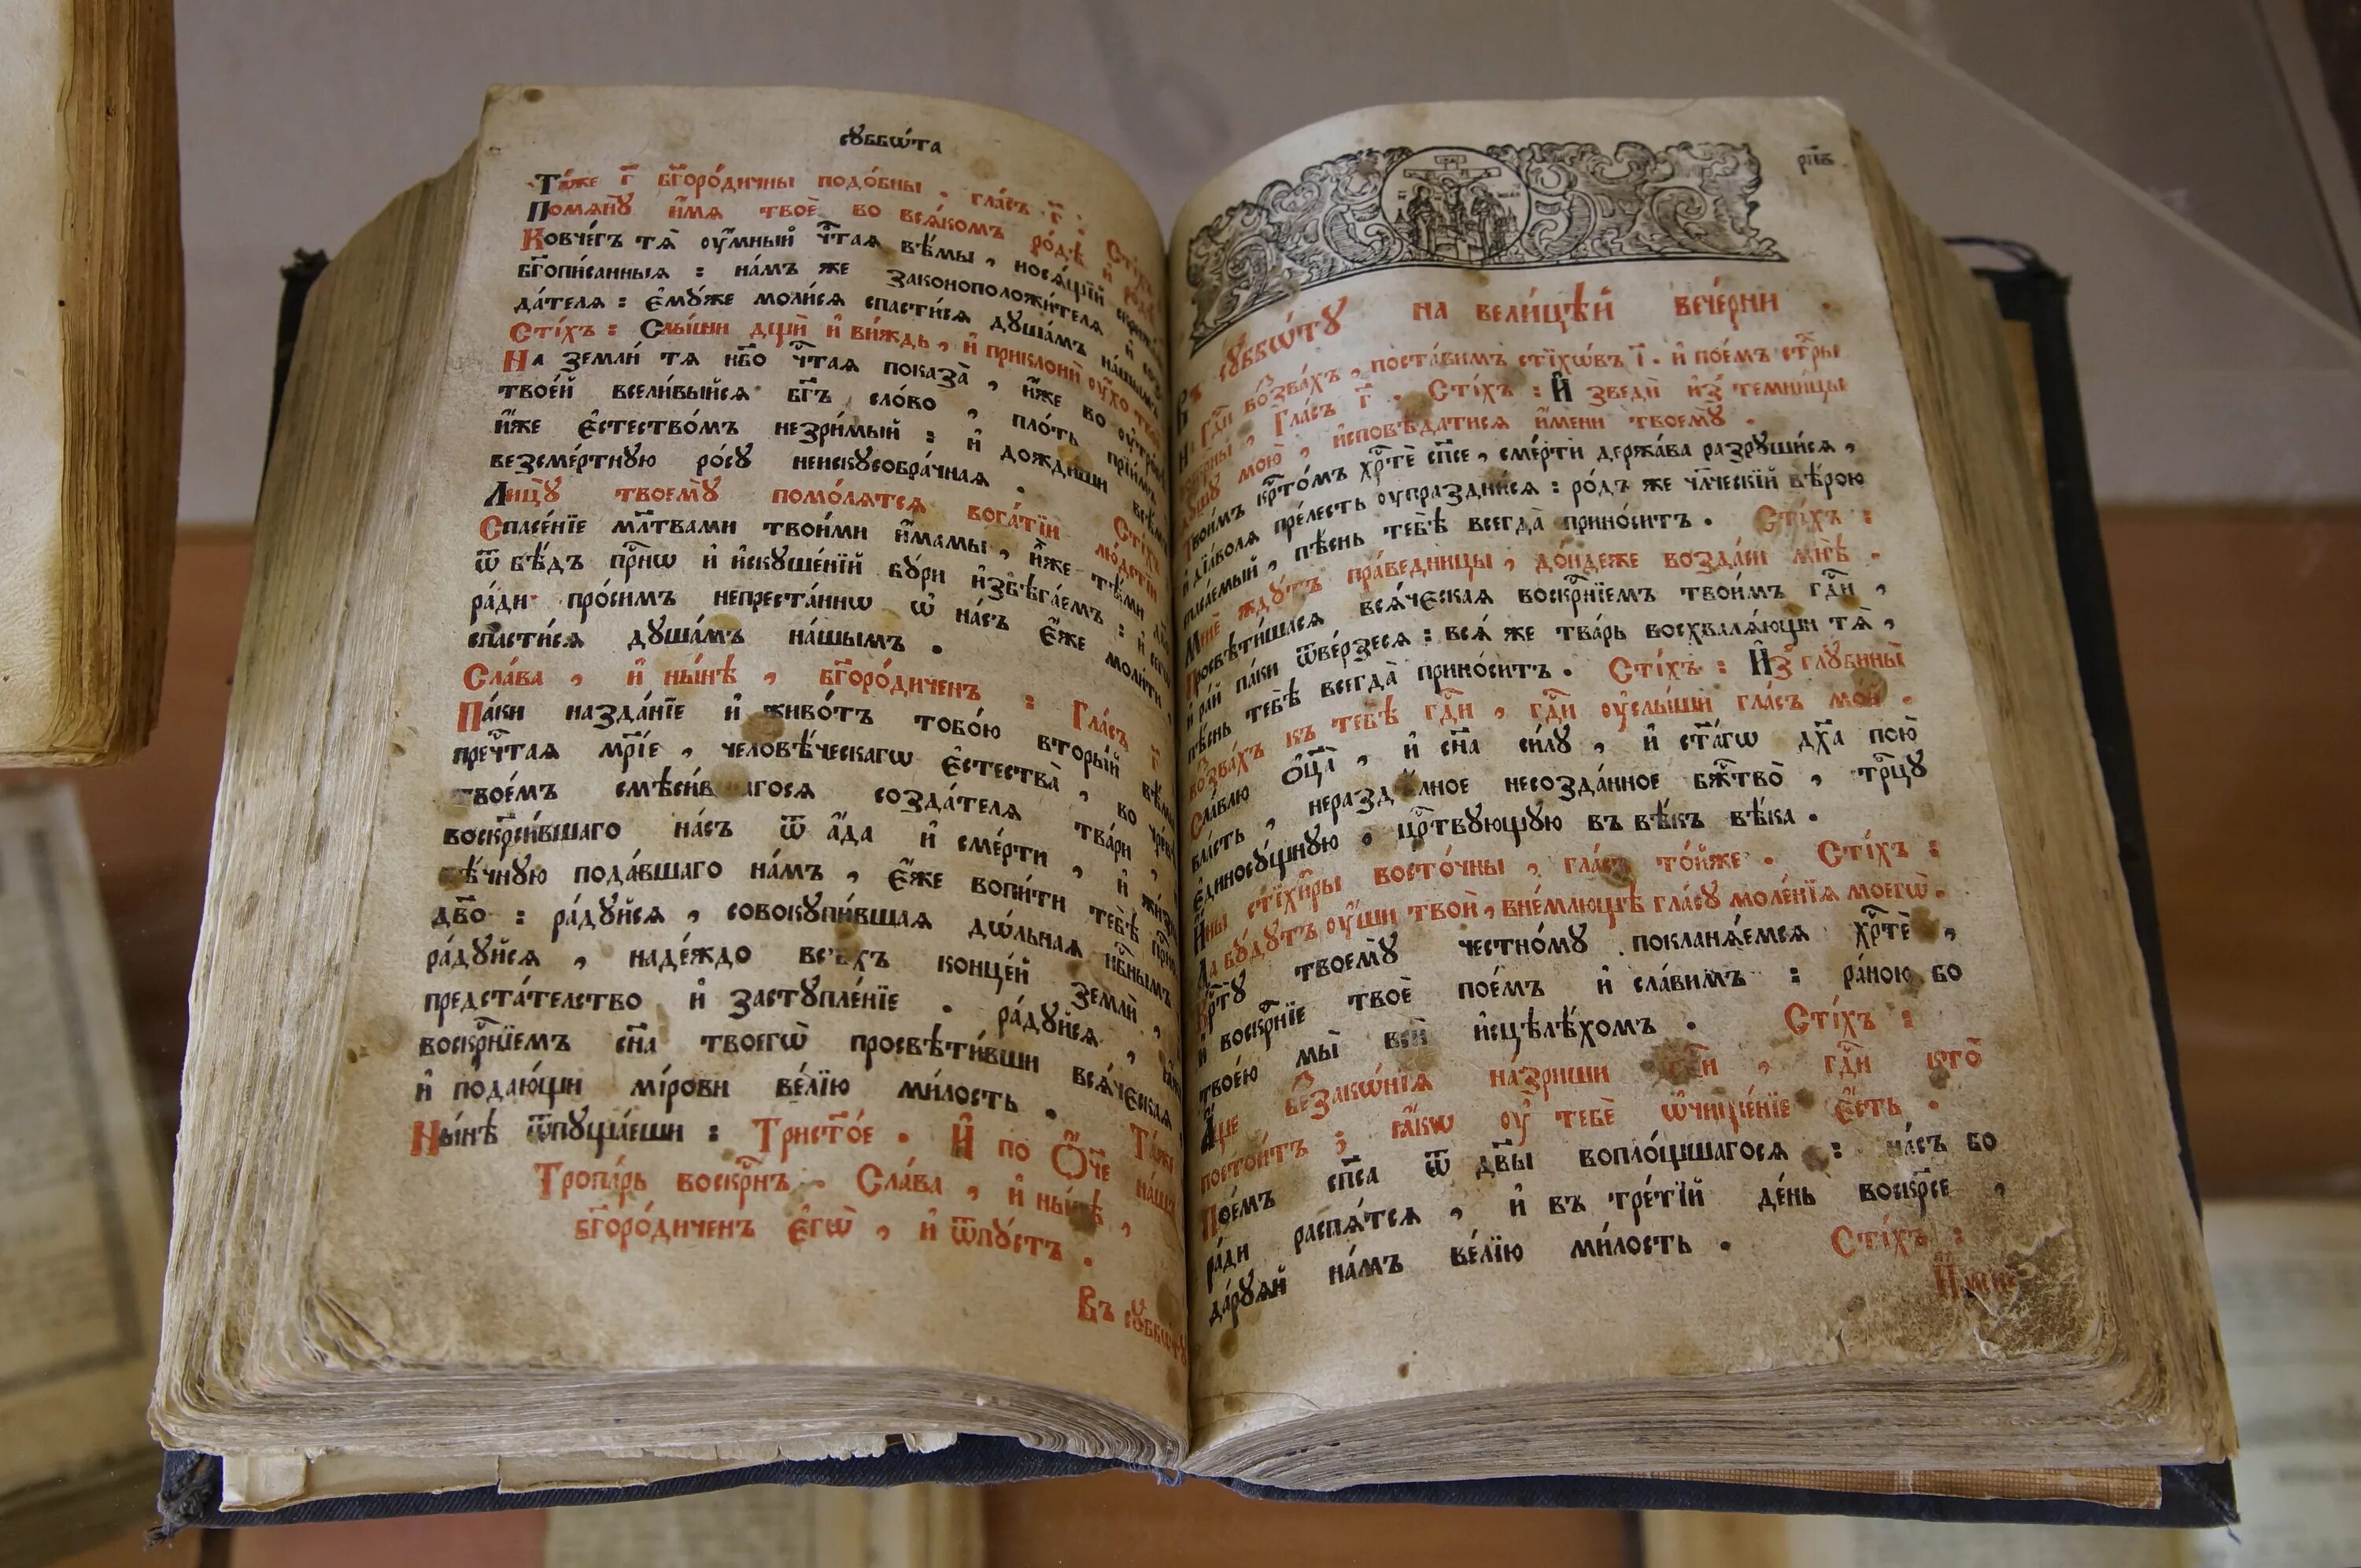 сꙋббѡ́та
Та́же г҃ бг҃оро́дичны подо́бны , гла́съ г҃ :
Помѧнꙋ̀ и҆́мѧ твоѐ во всѧ́комъ ро́дѣ и҆
Ковче́гъ тѧ̀ ᲂу҆́мный чⷭ҇таѧ вѣ́мы , носѧ́щїй
бг҃опи́санныѧ : на́мъ же законоположи́телѧ и҆
да́телѧ : є҆мꙋ́же моли́сѧ спасти́сѧ дꙋша́мъ на́шымъ
Сті́хъ : Слы́ши дщѝ и҆ ви́ждь , и҆ приклонѝ ᲂу҆́хо
На землѝ тѧ нб҃о чⷭ҇таѧ показа̀ , и҆́же во
твое́й всели́выйсѧ бг҃ъ сло́во , пло́ть прїи́мъ
и҆́же є҆стество́мъ незри́мый : и҆ дождиши
безсме́ртнꙋю ро́сꙋ неискꙋсобра́чнаѧ .
Лицꙋ̀ твоемꙋ̀ помо́лѧтсѧ бога́тїи людсті́и Сті́хъ
Спасе́нїе мл҃твами твои́ми и҆́мамы , и҆́же тѣ́ми
ѿ бѣ́дъ прⷭ҇нѡ и҆ и҆скꙋше́нїй бꙋ́ри и҆збѣга́емъ : и҆
ра́ди про́симъ непреста́ннѡ ѡ҆ на́съ є҆́же моли́ти ,
спасти́сѧ дꙋша́мъ на́шымъ .
Сла́ва , и҆ ны́нѣ , бг҃оро́диченъ : Гла́съ г҃
Па́киназда́нїе и҆ живо́тъ тобо́ю вторы́й вѣ́мы
пречⷭ҇таѧ мр҃і́е , человѣ́ческагѡ є҆стества̀ , во чре́вѣ
твое́мъ смѣси́вшагосѧ созда́телѧ тва́ри ,
воскрⷭ҇и́вшаго на́съ ѿ а҆́да и҆ сме́рти , и҆ жи́знь
вѣ́чнꙋю пода́вшаго на́мъ , є҆́же вопи́ти тебѣ̀ прⷭ҇нѡ
дв҃о : ра́дꙋйсѧ , совокꙋпи́вшаѧ дѡ́льнаѧ нбⷭ҇нымъ
ра́дꙋйсѧ , наде́ждо всѣ́хъ конце́й землѝ ,
предста́телство и҆ застꙋпле́нїе . ра́дꙋйсѧ ,
воскрⷭ҇нїемъ сн҃а твоегѡ̀ просвѣти́вши всѧ́ческаѧ ,
и҆ подаю́щи мі́рови ве́лїю ми́лость . Та́же
Ны́нѣ ѿпꙋща́еши : Трист҃о́е . И҆ по Ѻ҆́ч҃е на́шъ
Тропа́рь воскрⷭ҇нъ . Сла́ва , и҆ ны́нѣ ,
бг҃оро́диченъ є҆гѡ̀ , и҆ ѿпꙋ́стъ .
Въ сꙋббѡ́тꙋ
рп҃в
Въ сꙋббѡ́тꙋ на вели́цѣй вече́рни .
На Гдⷭ҇и возва́хъ , поста́вимъ стїхѡ́въ ı҃ . и҆ пое́мъ стⷯры
Гла́съ г҃ . Сті́хъ : И҆ зведѝ и҆з̾ темни́цы
дꙋ́шꙋ мою̀ , и҆сповѣ́датисѧ и҆́мени твоемꙋ̀ .
Твои́мъ крⷭ҇то́мъ хрⷭ҇тѐ сп҃се , сме́рти держа́ва разрꙋши́сѧ ,
и҆ дїа́волѧ пре́лесть ᲂупраздни́сѧ : ро́дъ же чл҃ческїй вѣ́рою
спаса́емый , пѣ́снь тебѣ̀ всегда̀ прино́ситъ . Сті́хъ :
Менѐ ждꙋ́тъ пра́ведницы , до́ндеже возда́си мнѣ̀ .
Просвѣти́шасѧ всѧ́ческаѧ воскрⷭ҇нїемъ твои́мъ гдⷭ҇и ,
и҆ ра́й па́ки ѿве́рзесѧ : всѧ́ же тва́рь восхвалѧ́ющи тѧ̀ ,
пѣ́снь тебѣ̀ всегда̀ прино́ситъ . Сті́хъ : И҆з̾ глꙋбины̀
возва́хъ къ тебѣ̀ гдⷭ҇и , гдⷭ҇и ᲂу҆слы́ши гла́съ мо́й .
Сла́влю ѻ҆ц҃а̀ , и҆ сн҃а си́лꙋ , и҆ ст҃а́гѡ дх҃а пою̀
вла́сть , неразд лное несозда́нное бжⷭ҇тво̀ , трⷪ҇цꙋ
є҆диносꙋ́щнꙋю , црⷭ҇твꙋющꙋю въ вѣ́къ вѣ́ка .
И҆ны стїхи̑ры восто́чны , гла́съ то́йже . Сті́хъ :
Да бꙋ́дꙋтъ ᲂу҆́ши твоѝ , вне́млющѣ гла́сꙋ моле́нїѧ моегѡ̀ .
Крⷭ҇тꙋ̀ твоемꙋ̀ честно́мꙋ покланѧ́емсѧ хрⷭ҇тѐ ,
и҆ воскрⷭ҇нїе твоѐ пое́мъ и҆ сла́вимъ : ра́ною бо
твое́ю мы̀ всѝ и҆сцѣлѣ́хомъ . Сті́хъ :
А҆́ще беззакѡ́нїѧ на́зриши гдⷭ҇и , гдⷭ҇и кто̀
постои́тъ ; ꙗ҆́кѡ ᲂу҆ тебѐ ѡ҆чище́нїе є҆́сть .
Пое́мъ сп҃са ѿ дв҃ы вопло́щшагосѧ : на́съ бо
ра́ди распѧ́тсѧ , и҆ въ тре́тїй де́нь воскрⷭ҇се ,
да́рꙋѧй на́мъ ве́лїю ми́лость . Сті́хъ :